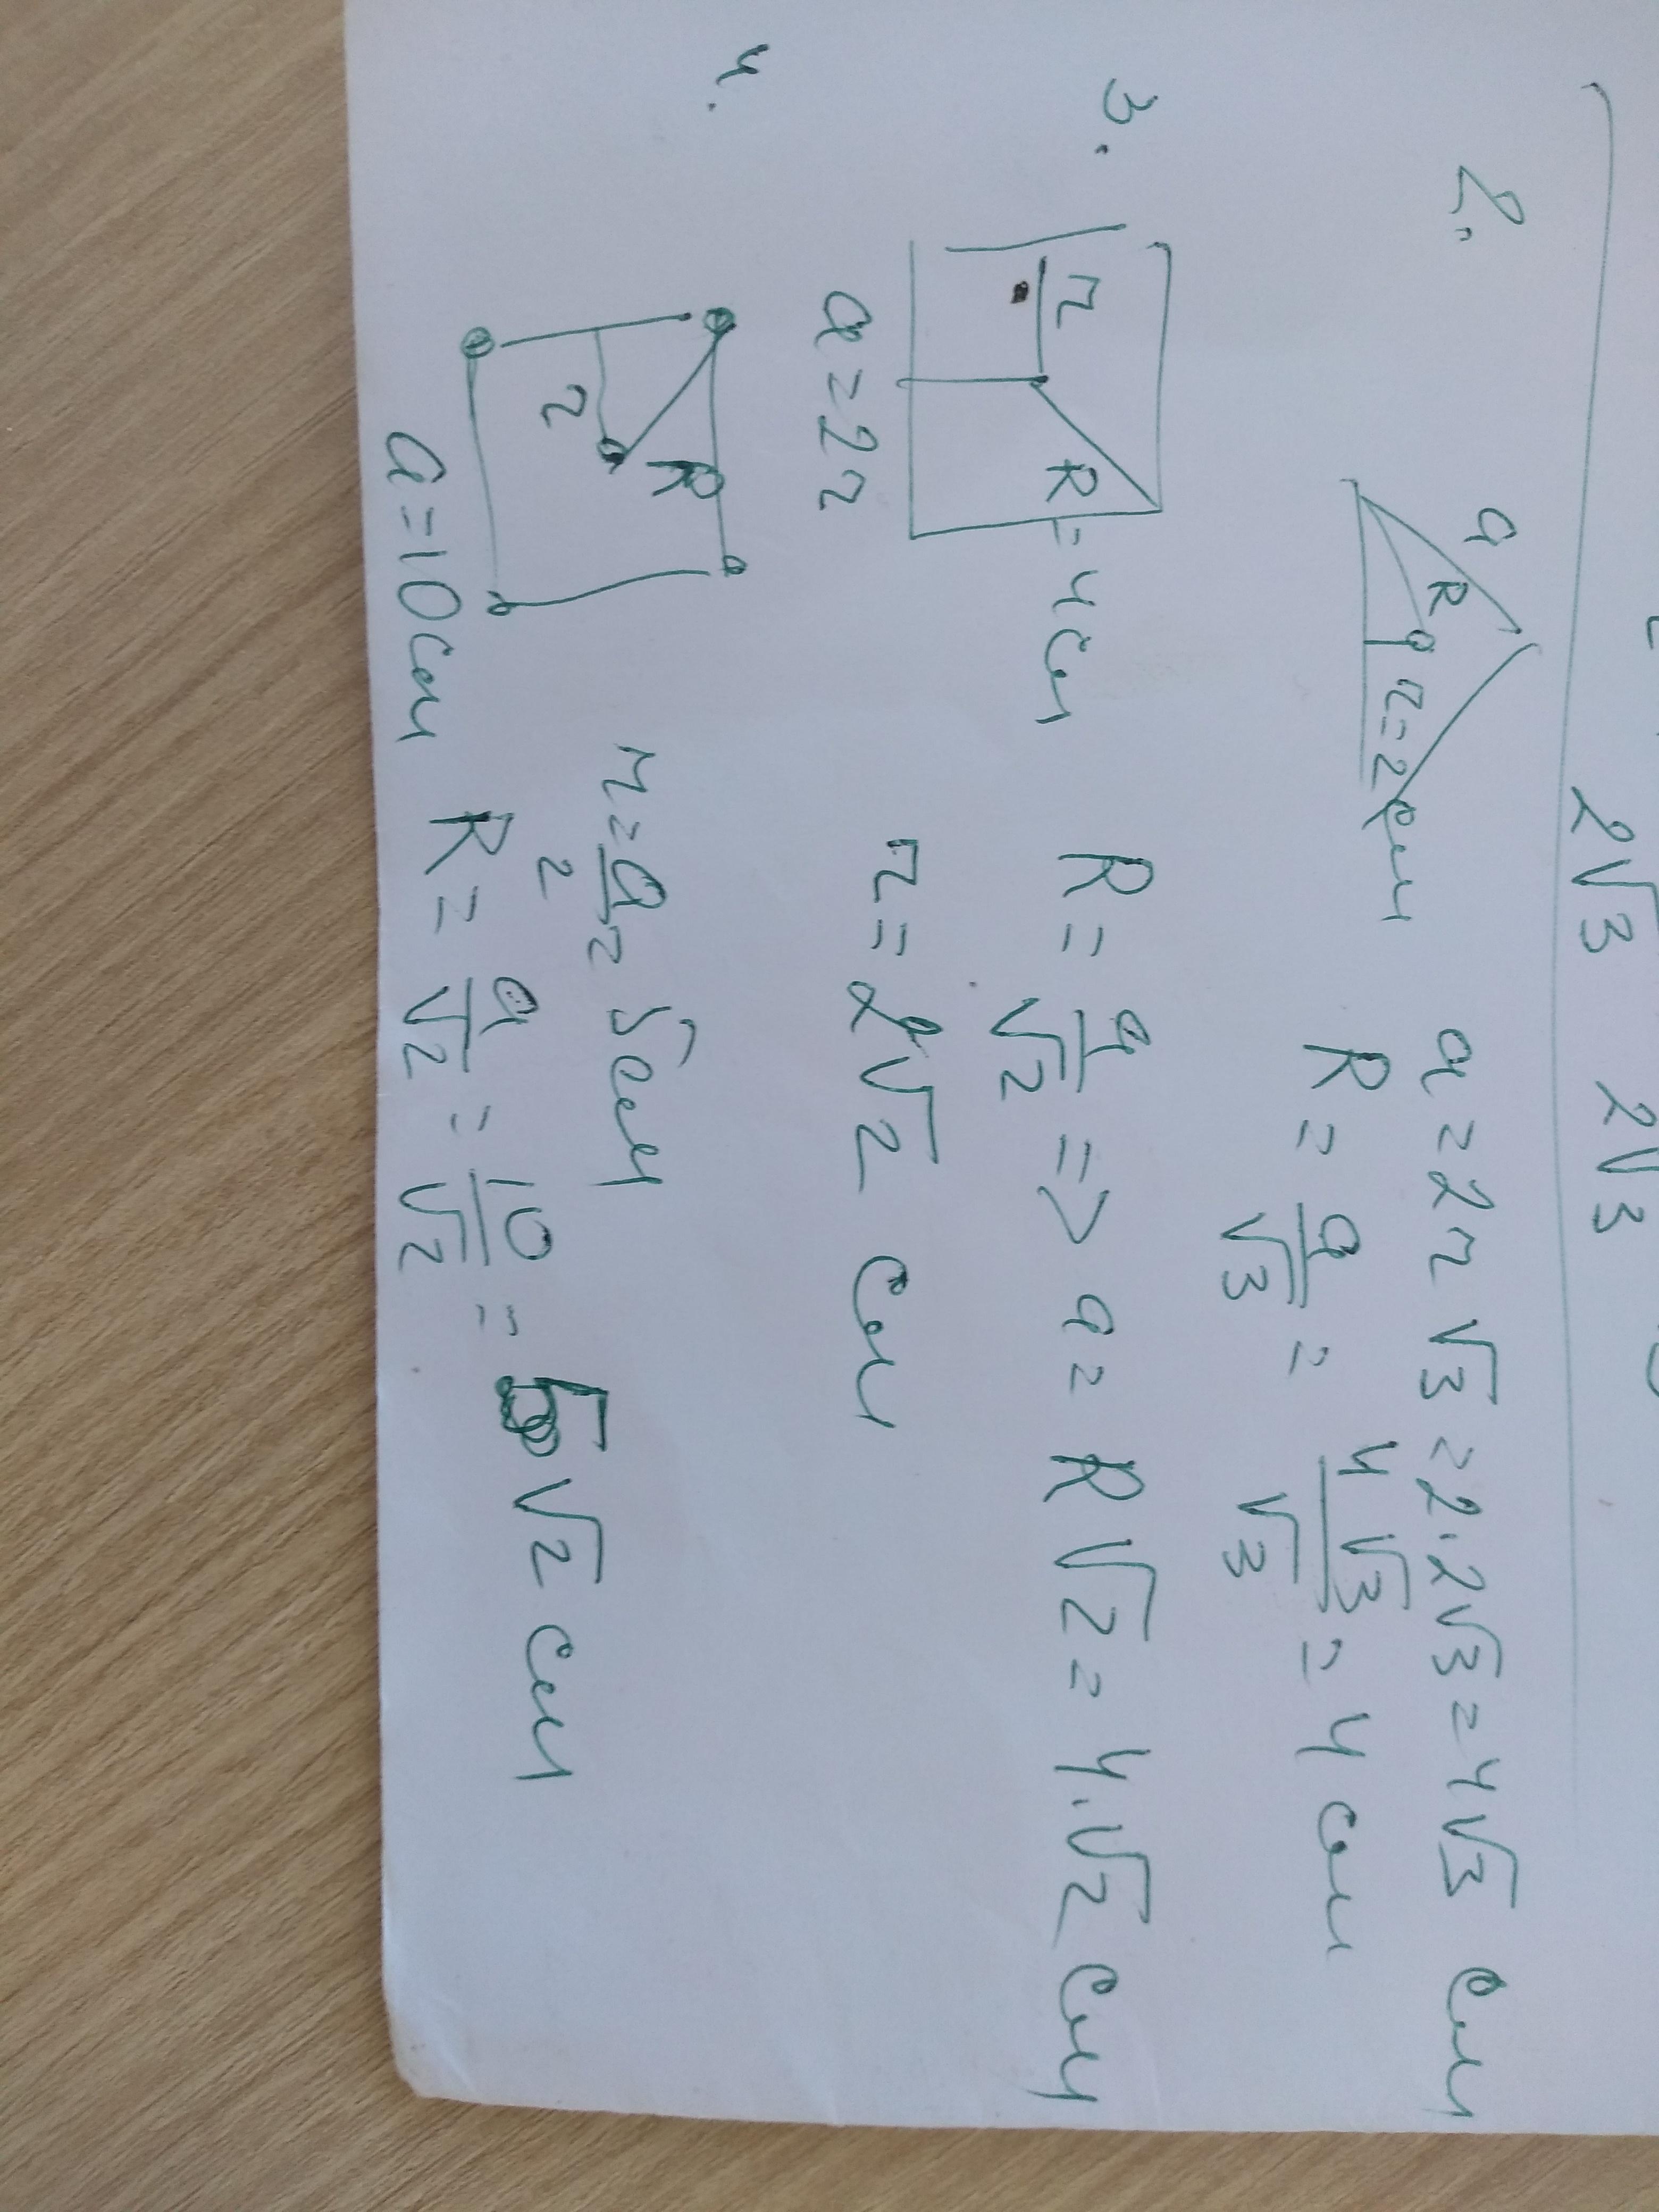 2√3 2√3
2.
a
R
r=2см
a=2r√3=2·2√3=4√3 см
R=a/√3=4√3/√3=4 см
3.
r
R=4см
a=2r
R=a/√2 => a=R√2=4·√2 см
r=2√2 см
4.
r
R
a=10см
r=a/2=5см
R=a/√2=10/√2=5√2 см